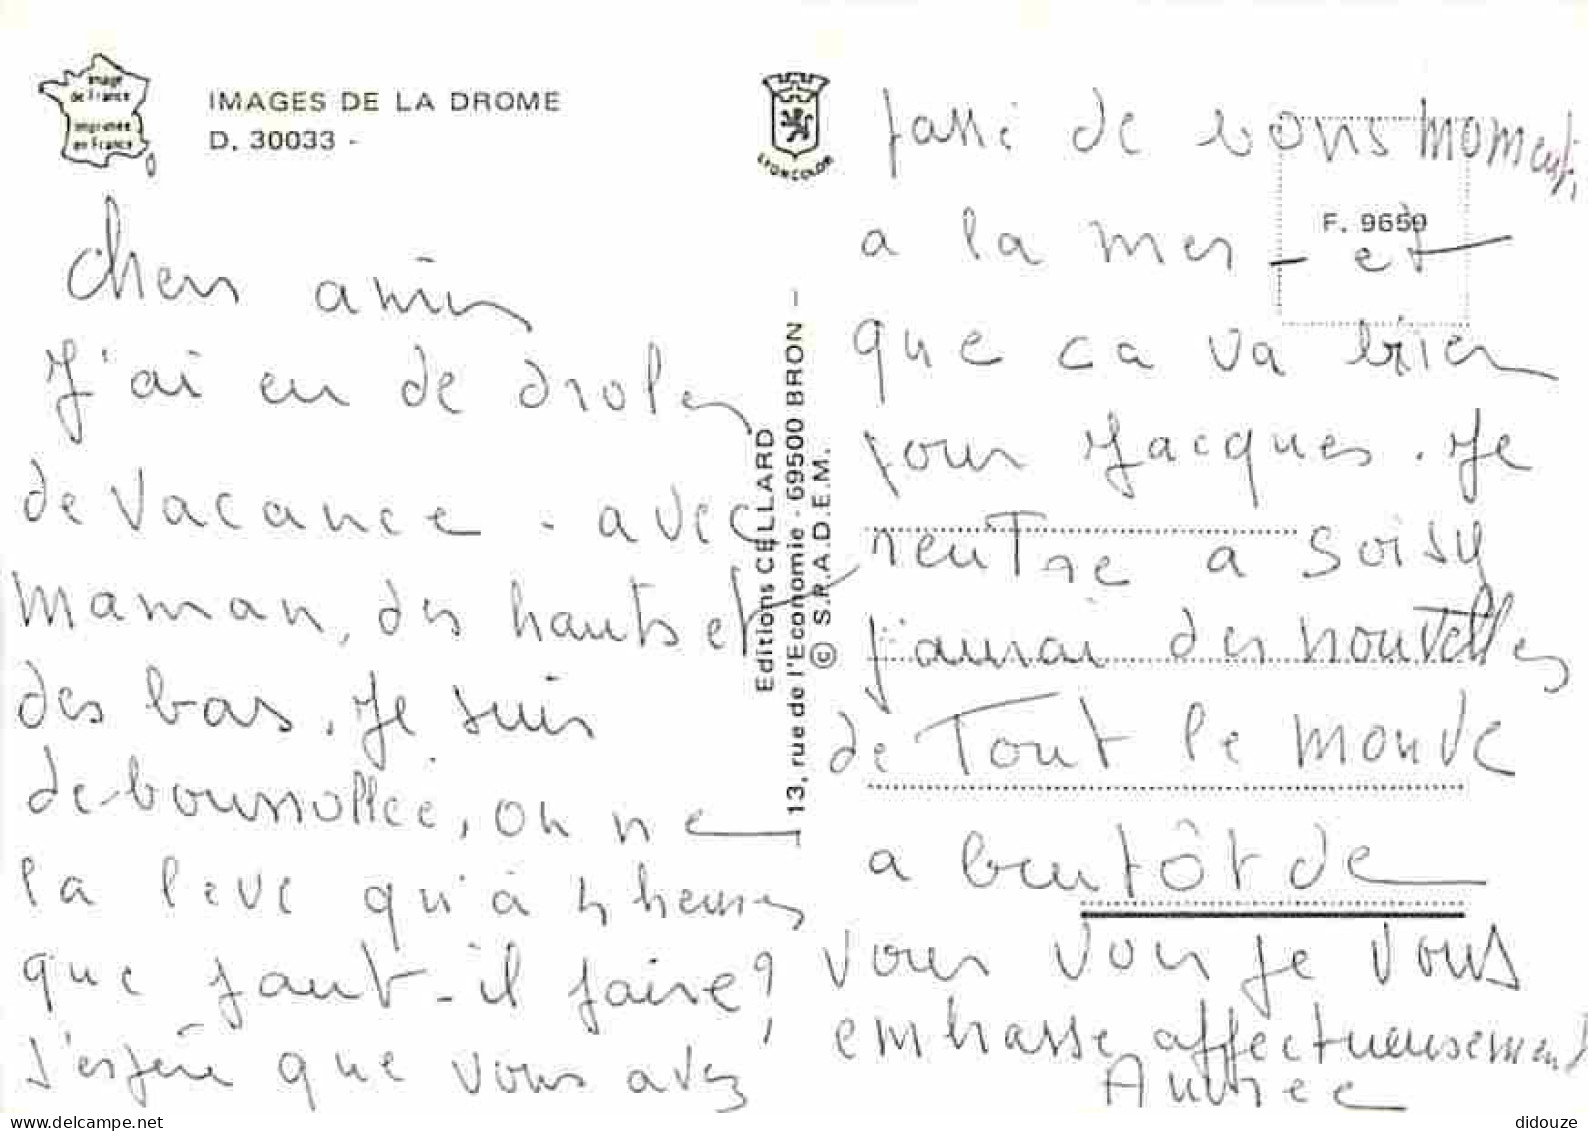 Image
de France
imprimée
en France
IMAGES DE LA DROME
D. 30033 -
LYONCOLOR
F. 9659
Chers amis
J'ai eu de droles
de vacance - avec
maman, des hauts et
des bas. Je suis
de boussollée, on ne
la lève qu'à 4 heures
que faut-il faire?
J'espère que vous avez
Editions CELLARD
13, rue de l'Economie - 69500 BRON -
© S.P.A.D.E.M.
passé de bons moments
a la mer - et
que ca va bien
pour Jacques. Je
rentre a Soisy
j'aurai des nouvelles
de Tout le monde
a bentôt de
vous voir je vous
embrasse affectueusement
Andrée
didouze
www.delcampe.net